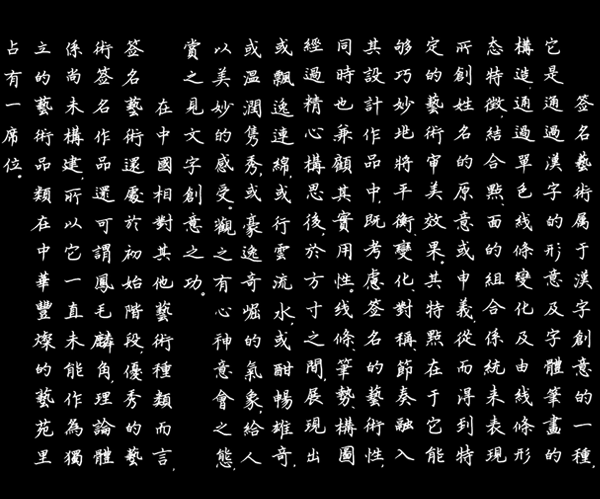 簽名藝術属于漢字創意的一種,
它是通過漢字的形意及字體筆畫的
構造,通過單色线條變化及由线條形
态特徵,結合點、面的組合係統来表現
所創姓名的原意或申義,從而得到特
定的藝術审美效果。其特點在于它能
够巧妙地將平衡變化、對稱節奏融入
其設計作品中,既考慮簽名的藝術性,
同時也兼顧其實用性。线條、筆勢、構圖
經過精心構思後,於方寸之間,展現出
或飄逸連綿,或行雲流水,或酣暢雄奇,
或溫潤雋秀,或豪逸奇崛的氣象,給人
以美妙的感受。觀之有心神意會之態,
賞之見文字創意之功。
在中國相對其他藝術種類而言,
簽名藝術還處於初始階段,優秀的藝
術簽名作品還可謂鳳毛麟角,理論體
係尚未構建,所以它一直未能作為獨
立的藝術品類在中華豐燦的藝苑里
占有一席位。